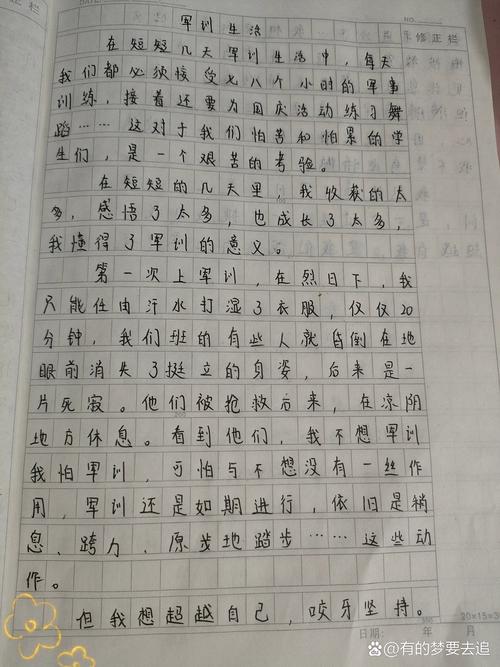 DATE
NO.
修正栏
军训生活
在短短几天军训生活中，每天
我们都必须接受七八个小时的军事
训练，接着还要为国庆活动练习舞
蹈……这对于我们怕苦和怕累的学
生们，是一个艰苦的考验。
在短短的几天里，我收获的太
多，感悟了太多，也成长了太多，
我懂得了军训的意义。
第一次上军训，在烈日下，我
只能任由汗水打湿了衣服，仅仅20
分钟，我们班的有些人就昏倒在地
眼前消失了挺立的身姿，后来是一
片死寂。他们被抢救后来，在凉阴
地方休息。看到他们，我不想军训
我怕军训，可怕与不想没有一丝作
用，军训还是如期进行，依旧是稍
息、跨力，原步地踏步……这些动
作。
但我想超越自己，咬牙坚持。
20×15=3
日期： 年 月
@有的梦要去追